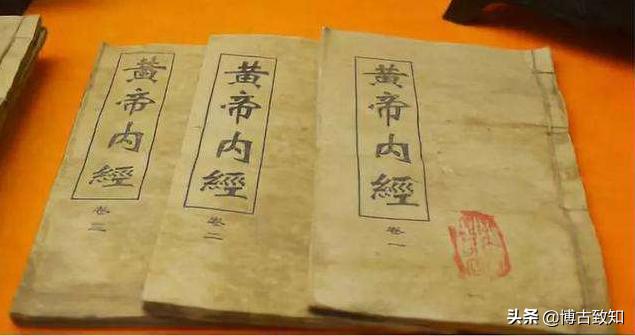 黄帝内經
卷三
黄帝内經
卷二
黄帝内經
卷一
头条 @博古致知